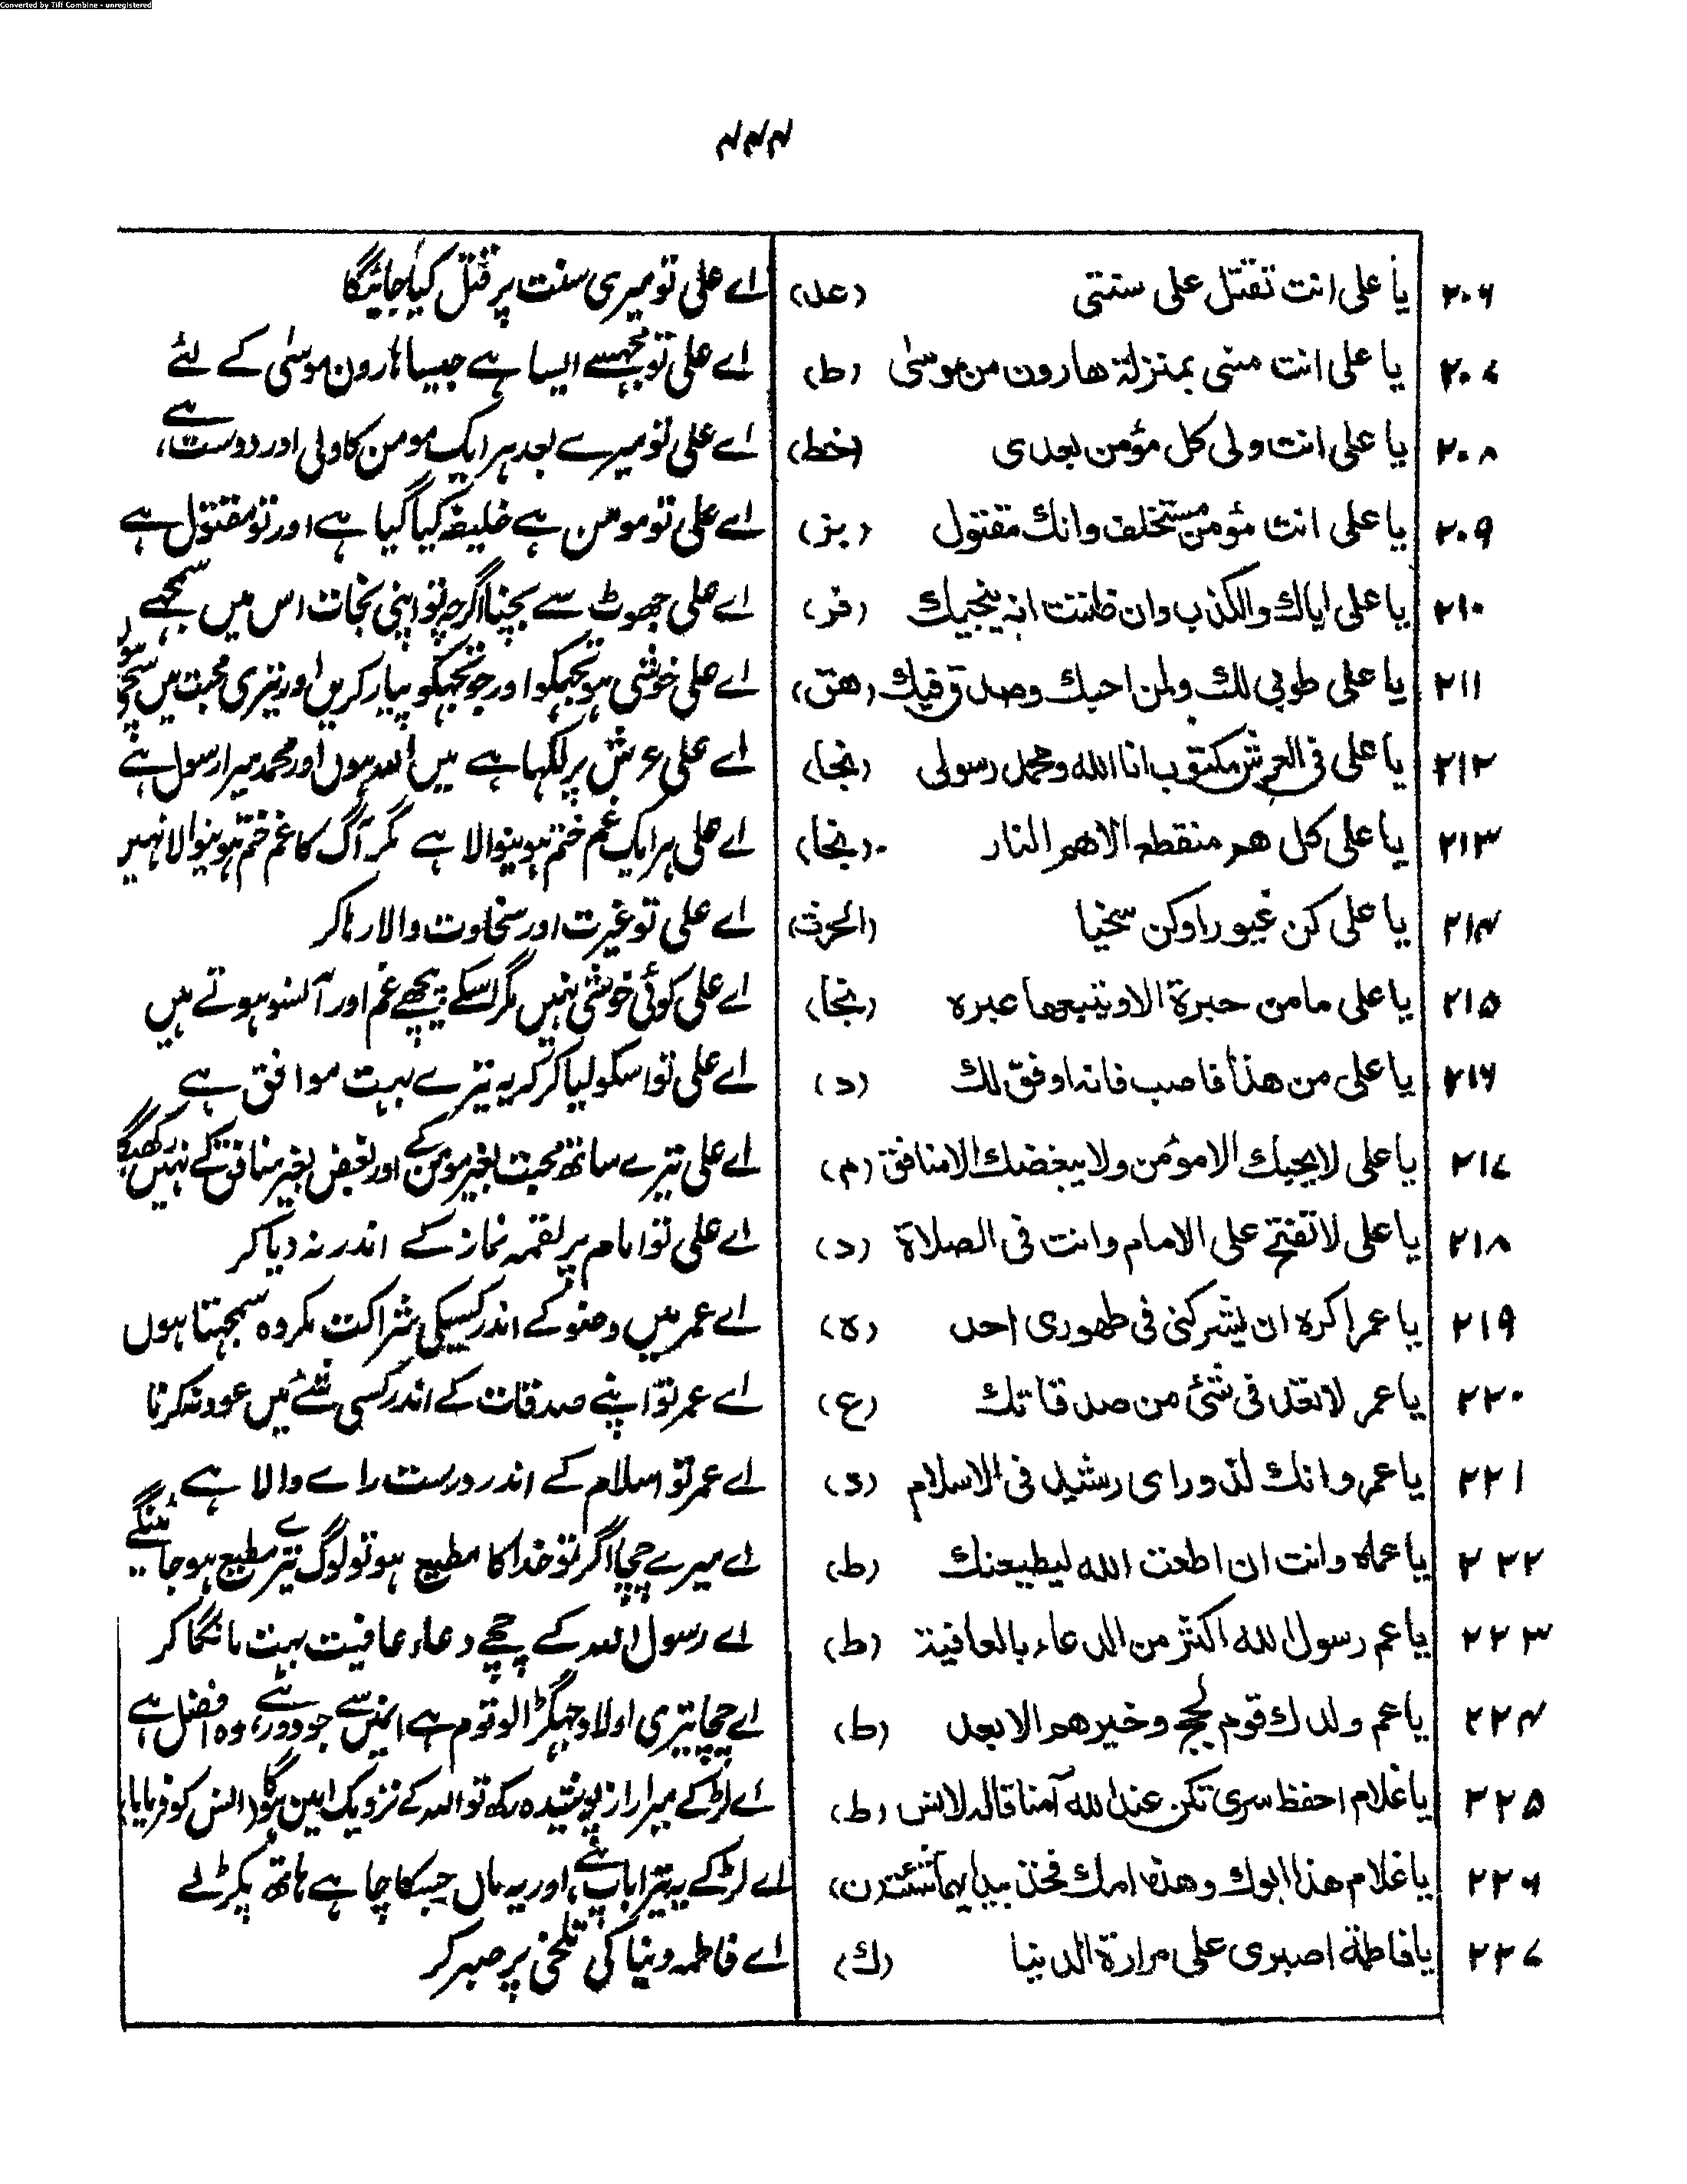 Converted by Tiff Combine - unregistered
۴۴۴
۲۰۶ یا علی انت تقتل علی سنتی (عد) اے علی تو میری سنت پر قتل کیا جائیگا
۲۰۷ یا علی انت منی بمنزلة هارون من موسیٰ (ط) اے علی تو مجہسے ایسا ہے جیسا ہارون موسیٰ کے لئے
۲۰۸ یا علی انت ولی کل مؤمن بعدی (خط) اے علی تو میرے بعد ہر ایک مومن کا ولی اور دوست ہے
۲۰۹ یا علی انت مؤمن مستخلف وانك مقتول (بز) اے علی تو مومن ہے خلیفہ کیا گیا ہے اور تو مقتول ہے
۲۱۰ یا علی ایاك والکذب وان ظننت انه ینجیك (فر) اے علی جھوٹ سے بچنا اگرچہ تو اپنی نجات اس میں سمجہے
۲۱۱ یا علی طوبی لك ولمن احبك وصدق فیك (هق) اے علی خوشی ہو تجہکو اور جو تجہکو پیار کریں اور تیری محبت میں سچے ہوں
۲۱۲ یا علی فی العرش مکتوب انا الله ومحمد رسولی (نجا) اے علی عرش پر لکہا ہے میں اللہ ہوں اور محمد میرا رسول ہے
۲۱۳ یا علی کل هم منقطع الا هم النار (نجا) اے علی ہر ایک غم ختم ہونیوالا ہے مگر آگ کا غم ختم ہونیوالا نہیں
۲۱۴ یا علی کن غیورا وکن سخیا (الحرث) اے علی تو غیرت اور سخاوت والا رہا کر
۲۱۵ یا علی ما من حبرة الا ویتبعها عبره (نجا) اے علی کوئی خوشی نہیں مگر اسکے پیچھے غم اور آنسو ہوتے ہیں
۲۱۶ یا علی من هذا فاصب فانه اوفق لك (د) اے علی تو اسکو لیا کر کہ یہ تیرے بہت موافق ہے
۲۱۷ یا علی لا یحبك الا مؤمن ولا یبغضك الا منافق (م) اے علی تیرے ساتھ محبت بغیر مومن کے اور بغض بغیر منافق کے نہیں رکھیگا
۲۱۸ یا علی لا تفتح علی الامام وانت فی الصلاة (د) اے علی تو امام پر لقمہ نماز کے اندر نہ دیا کر
۲۱۹ یا عمر اکره ان یشرکنی فی طهوری احد (ه) اے عمر میں وضو کے اندر کسیکی شراکت مکروہ سمجہتا ہوں
۲۲۰ یا عمر لا تعد فی شئ من صدقاتك (ع) اے عمر تو اپنے صدقات کے اندر کسی شئے میں عود نہ کرنا
۲۲۱ یا عمر وانك لذو رای رشید فی الاسلام (د) اے عمر تو اسلام کے اندر درست راے والا ہے
۲۲۲ یا عماه وانت ان اطعت الله لیطیعنك (ط) اے میرے چچا اگر تو خدا کا مطیع ہو تو لوگ تیرے مطیع ہو جائینگے
۲۲۳ یا عم رسول الله اکثر من الدعاء بالعافیة (ط) اے رسول اللہ کے چچے دعاء عافیت بہت مانگا کر
۲۲۴ یا عم ولدك قوم لحج وخیرهم الابعد (ط) اے چچا تیری اولاد جہگڑالو قوم ہے انمیں سے جو دور ہے، وہ افضل ہے
۲۲۵ یا غلام احفظ سری تکن عند الله آمنا قاله لانس (ط) اے لڑکے میرا راز پوشیدہ رکھ تو اللہ کے نزدیک امین ہوگا (انس کو فرمایا)
۲۲۶ یا غلام هذا ابوك وهذه امك فخذ بید ایهما شئت (ن) اے لڑکے یہ تیرا باپ ہے، اور یہ ماں جسکا چاہے ہاتھ پکڑ لے
۲۲۷ یا فاطمة اصبری علی مرارة الدنیا (ك) اے فاطمہ دنیا کی تلخی پر صبر کر